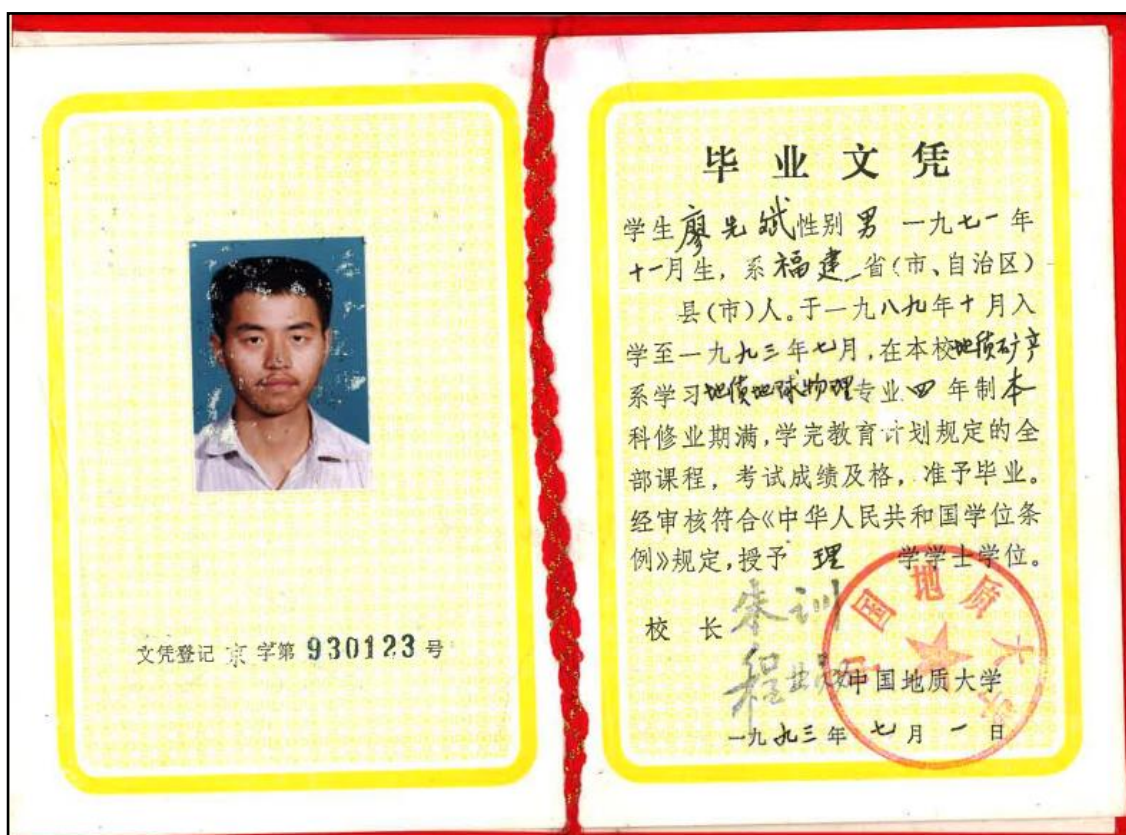 文凭登记 京 字第 930123 号
毕业文凭
学生廖先斌性别 男 一九七一年
十一月生，系福建 省(市、自治区)
县(市)人。于一九八九年十月入
学至一九九三年七月，在本校地质矿产
系学习地质地球物理专业 四 年制本
科修业期满，学完教育计划规定的全
部课程，考试成绩及格，准予毕业。
经审核符合《中华人民共和国学位条
例》规定，授予 理 学学士学位。
校 长 朱训
程业勋
中国地质大学
一九九三年 七 月 一 日
中国地质大学